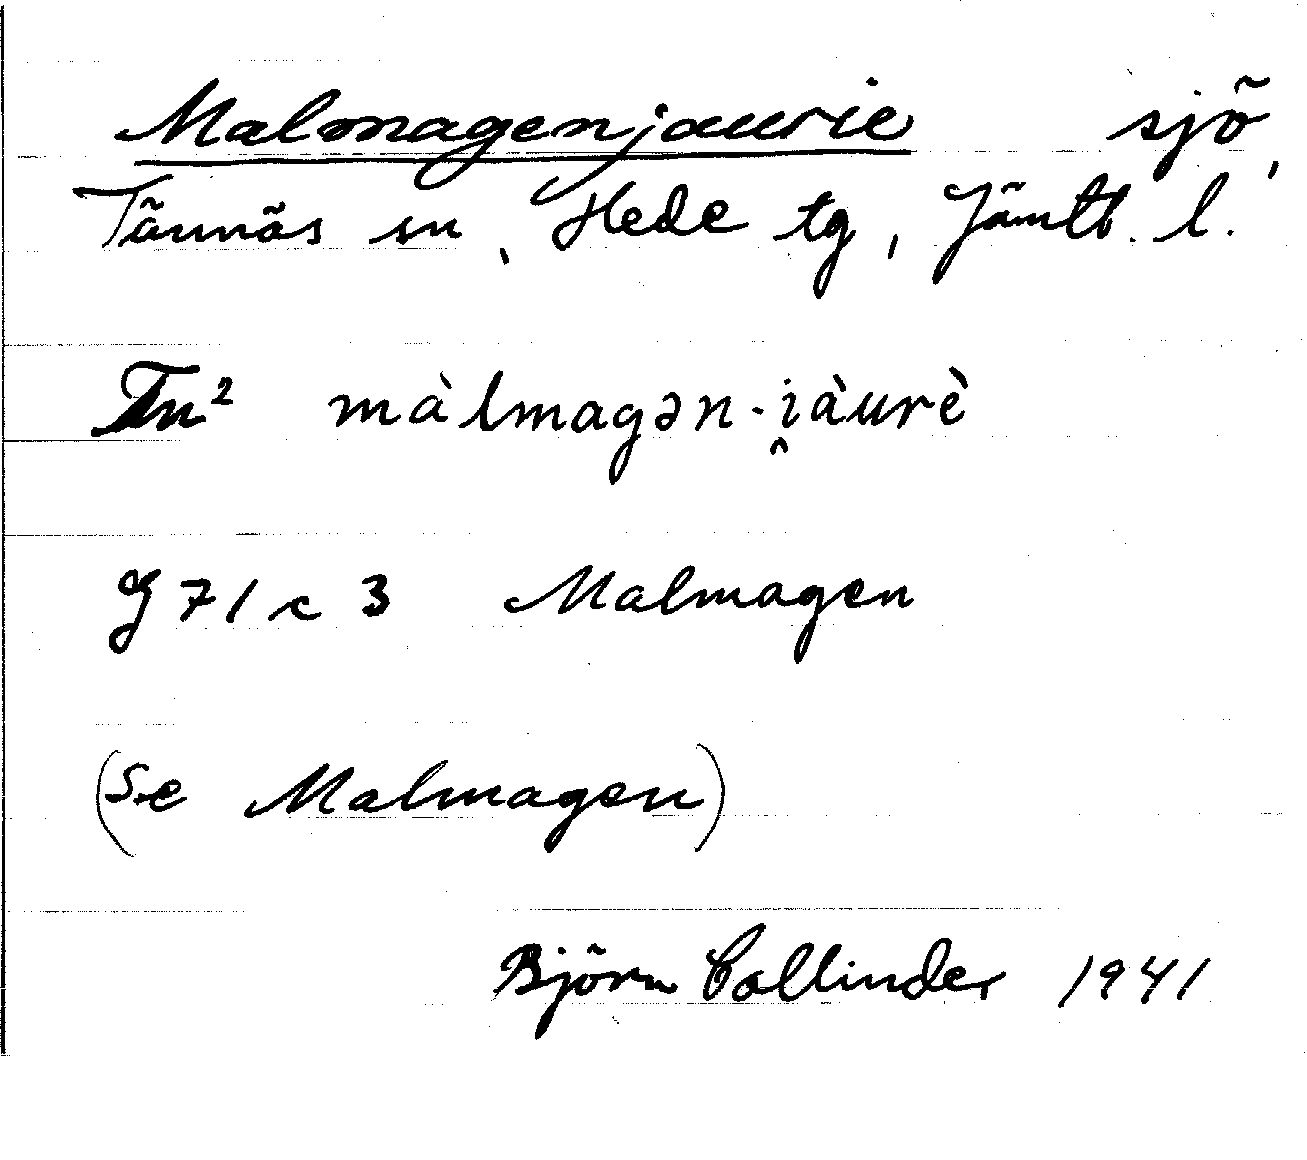 Malmagenjaurie sjö,
Tännäs sn, Hede tg, Jämtl. l.
Tn² màlmagən-i̯àurè
G 71 c 3 Malmagen
(Se Malmagen)
Björn Collinder 1941